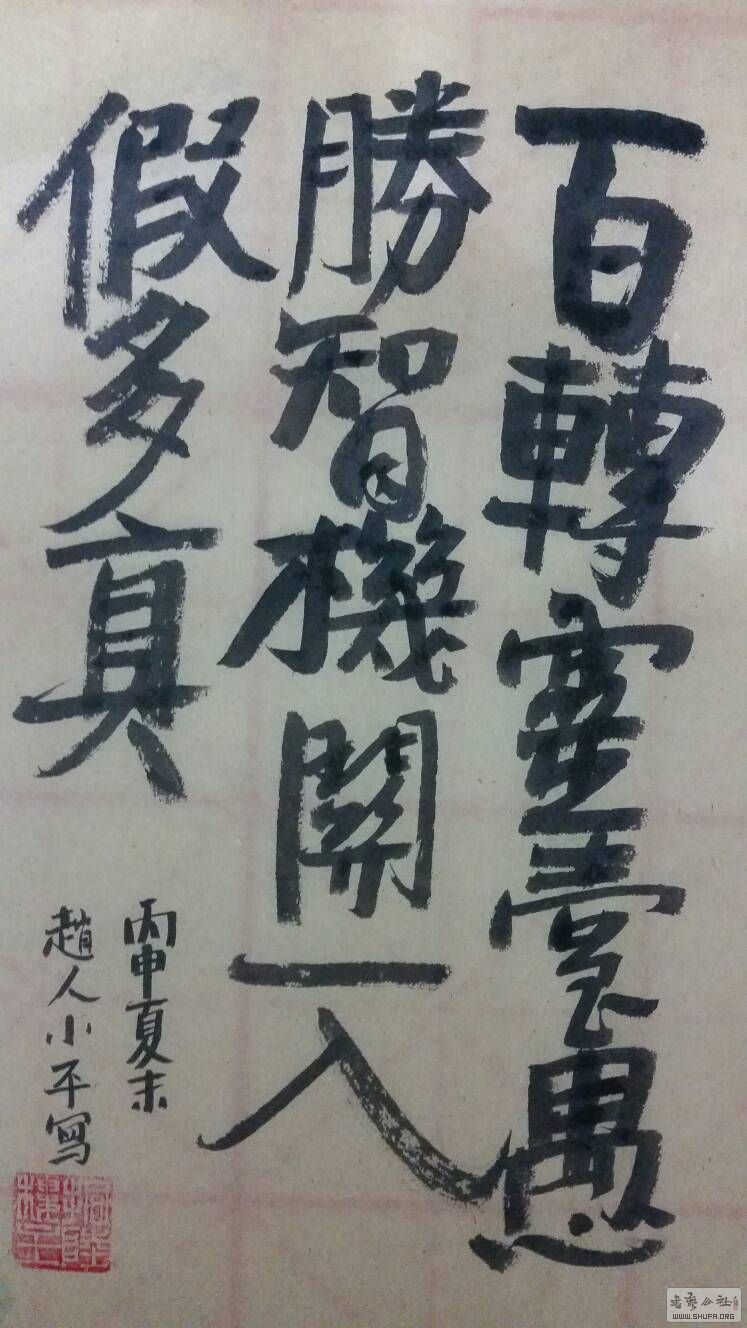 百轉靈臺愚
勝智機關一入
假多真
丙申夏末
趙人小平寫
書藝公社
WWW.SHUFA.ORG